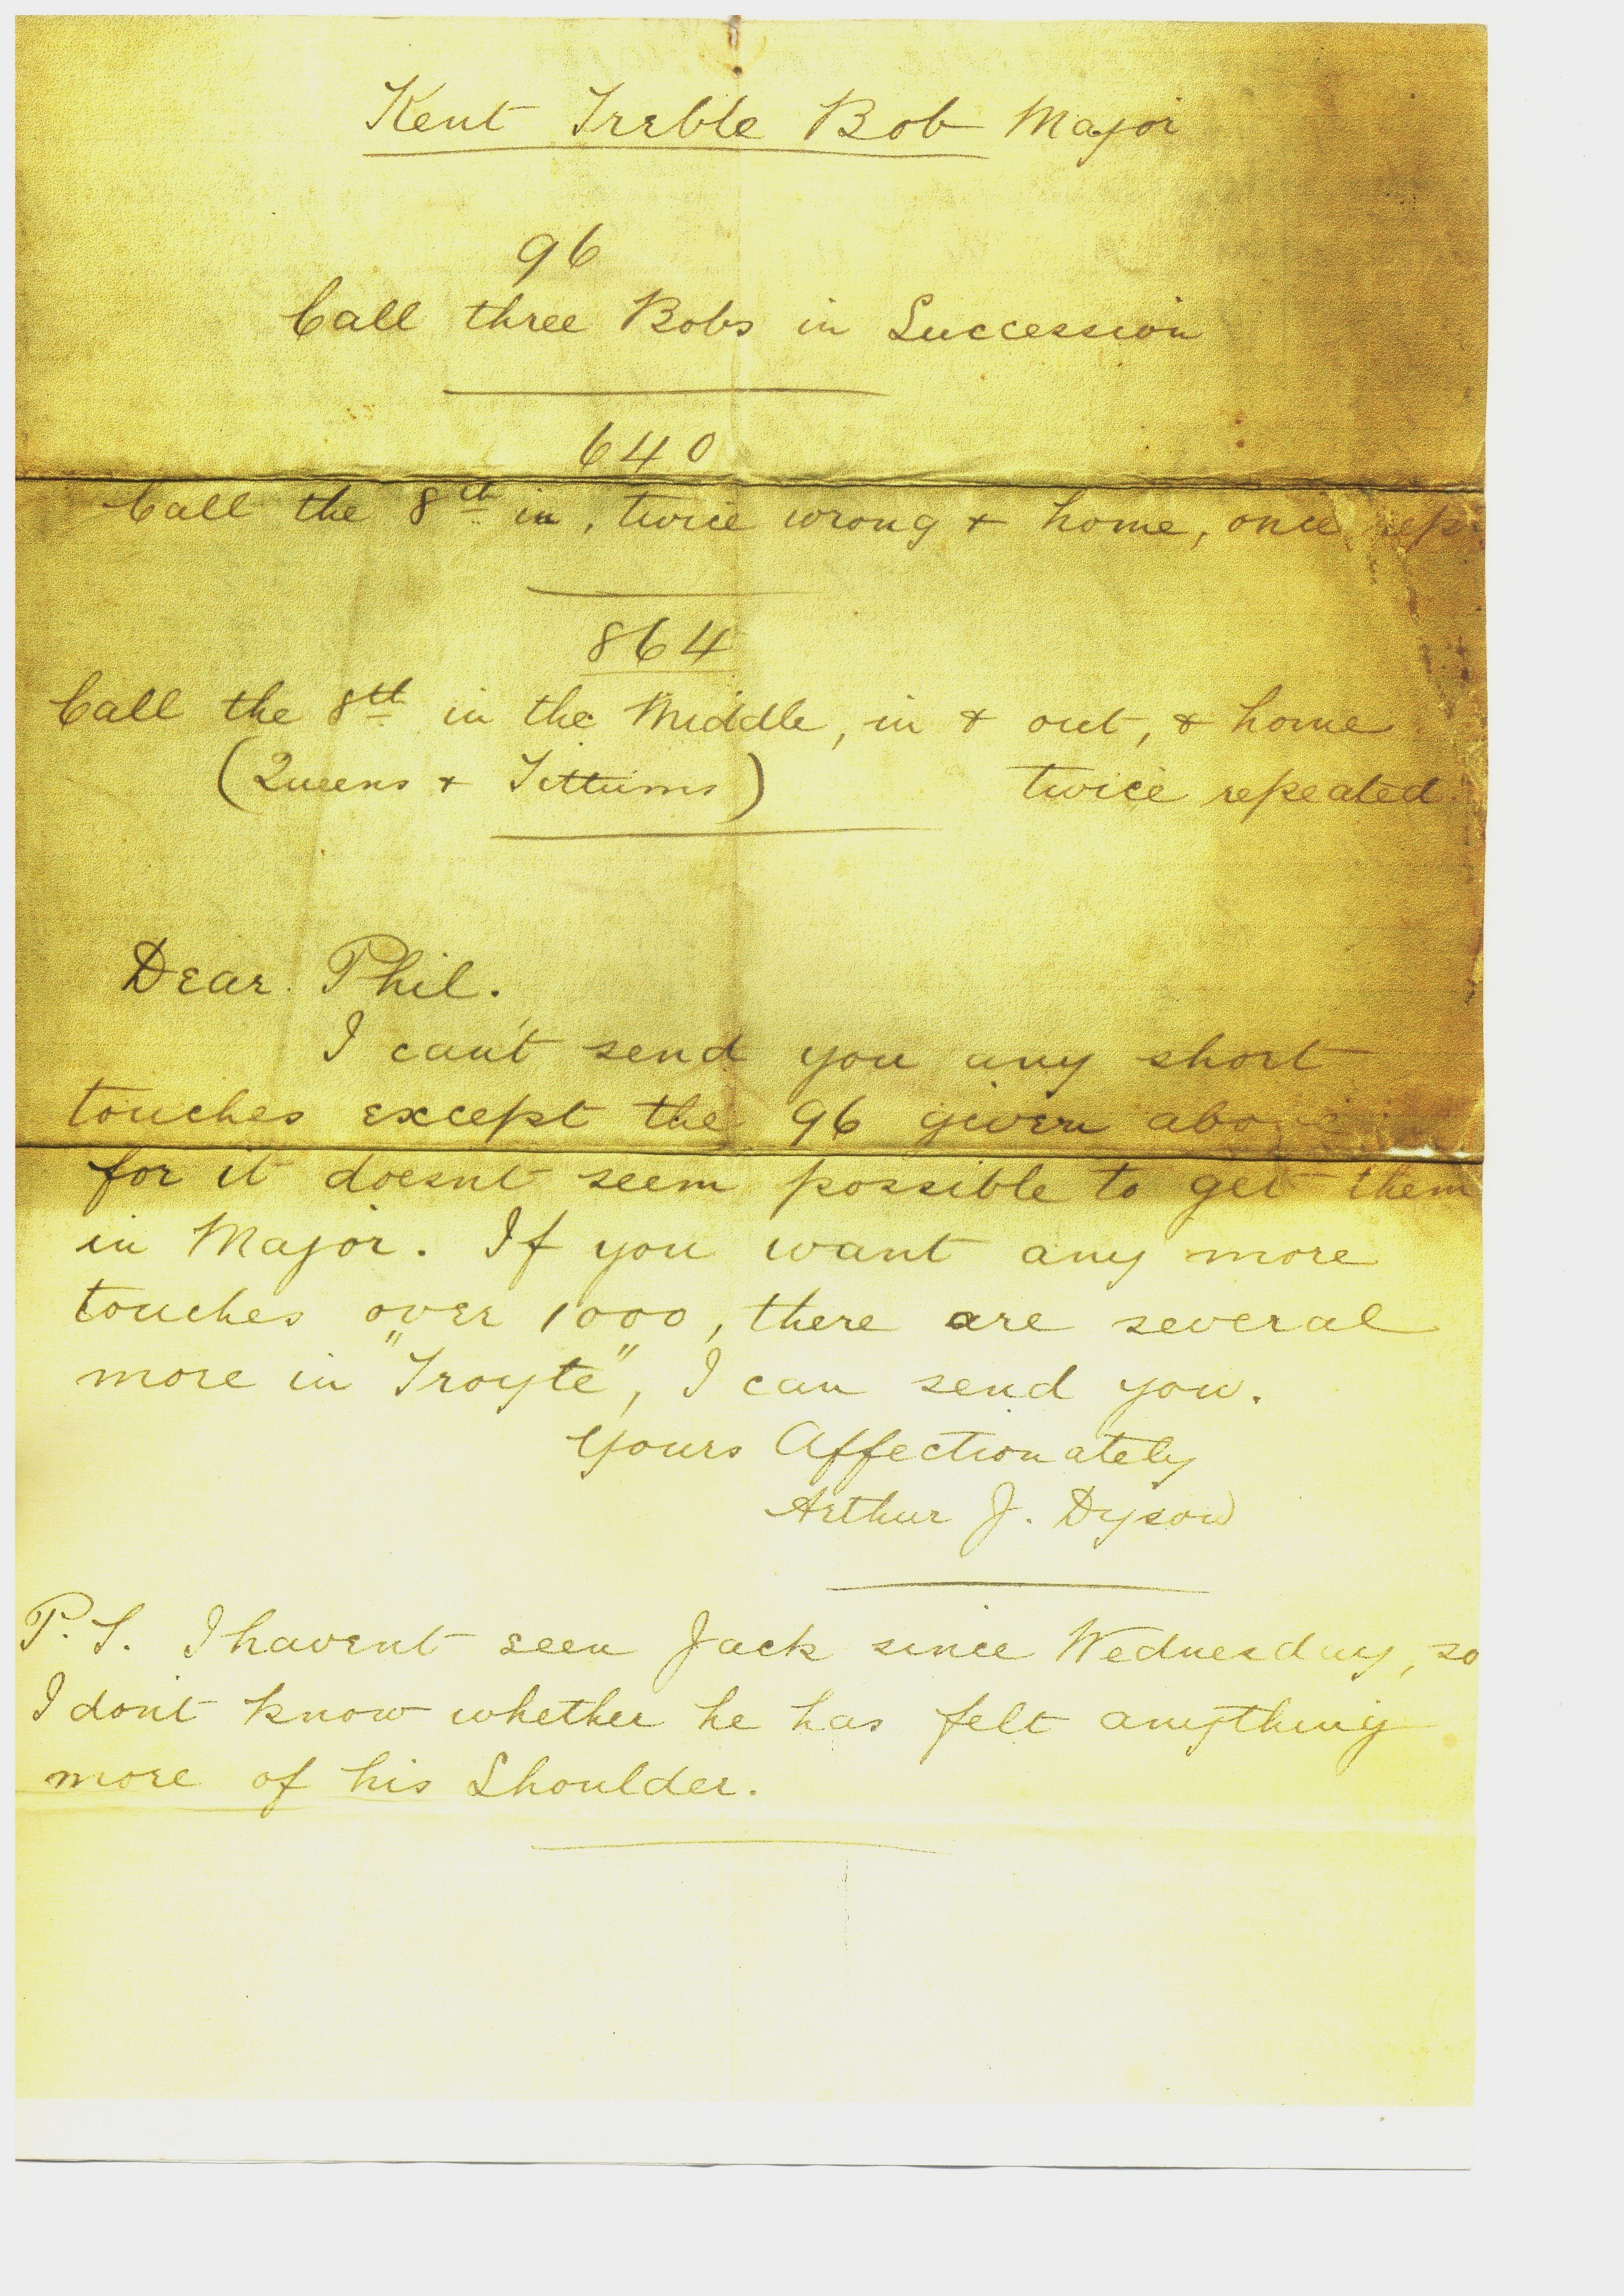 Kent Treble Bob Major
96
Call three Bobs in Succession
640
Call the 8th in, twice wrong & home, once rep
864
Call the 8th in the Middle, in & out, & home
(Queens & Tittums) twice repeated
Dear Phil.
I can't send you any short
touches except the 96 given above
for it doesnt seem possible to get them
in Major. If you want any more
touches over 1000, there are several
more in "Troyte", I can send you.
Yours Affectionately
Arthur J. Dyson
P.S. I havent seen Jack since Wednesday, so
I don't know whether he has felt anything
more of his Shoulder.